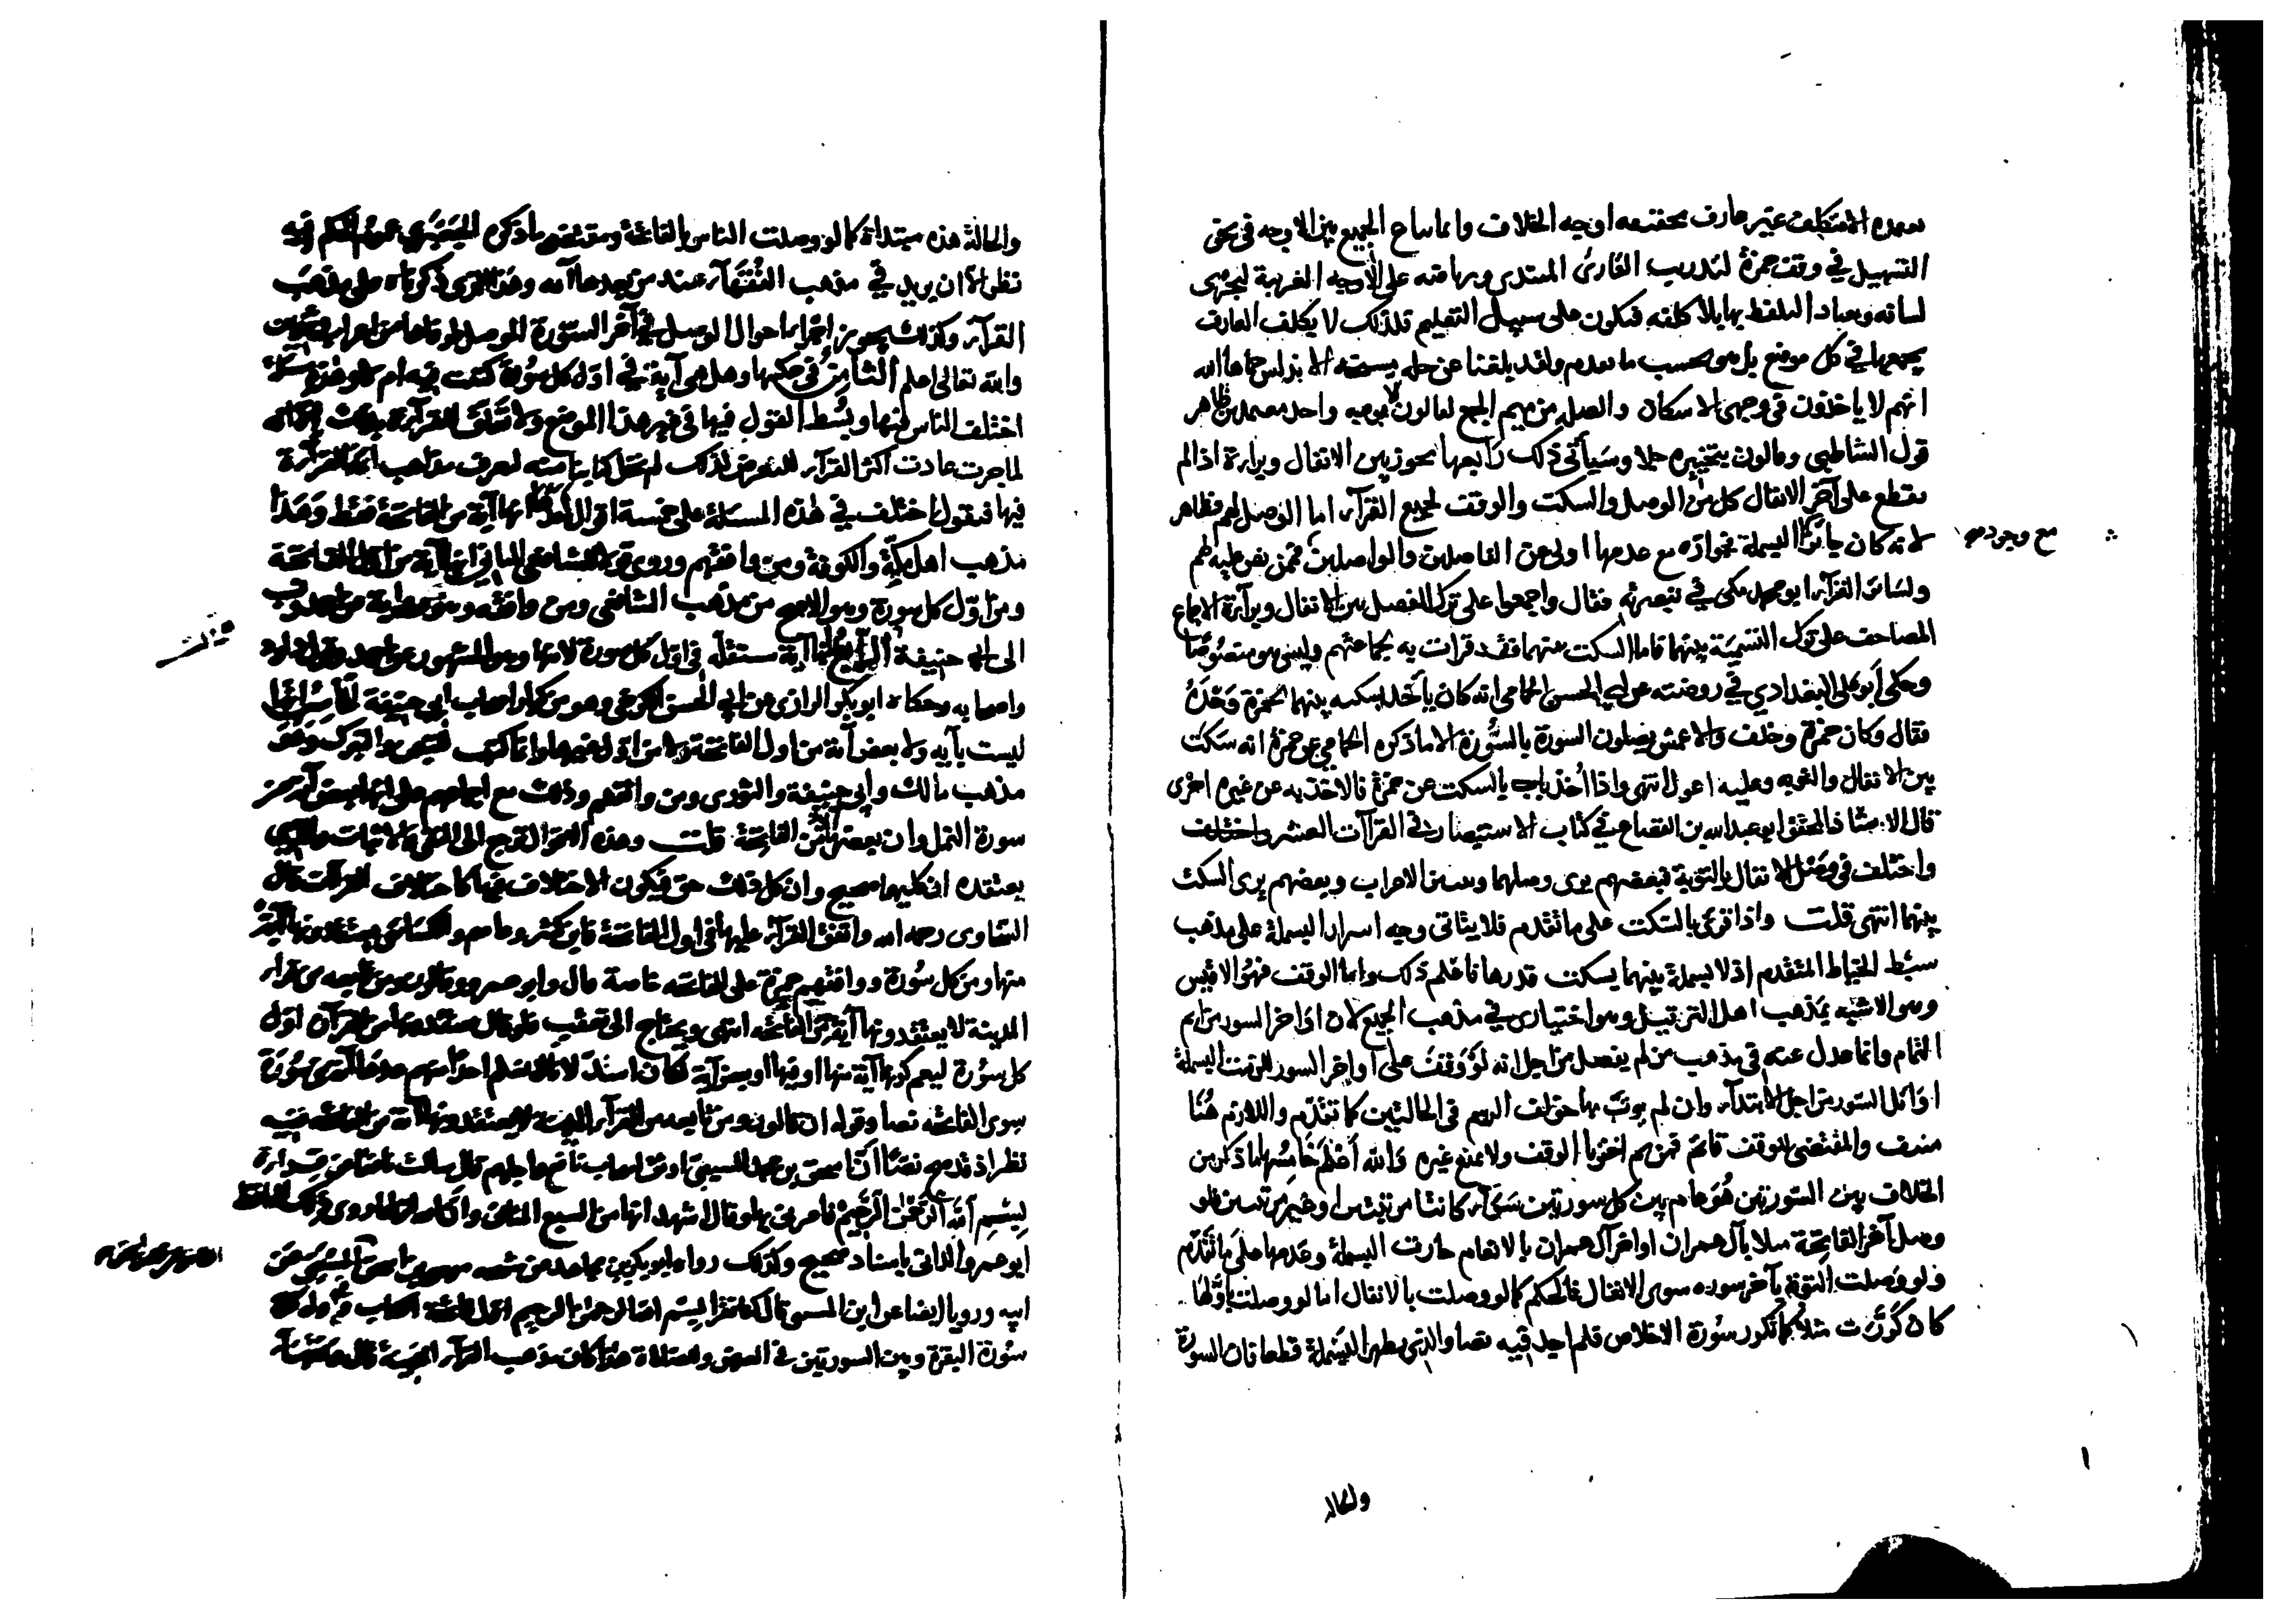 يعمده الا متكلف غير عارف بحقيقة اوجه الخلاف وانما ساغ الجمع بين الاوجه في نحو
التسهيل في وقف حمزة لتدريب القارئ المبتدي ورياضته على الأوجه الغريبة ليجري
لسانه ويعتاد التلفظ بها بلا كلفة فيكون على سبيل التعليم فلذلك لا يكلف العارف
بجمعها في كل موضع بل هو بحسب ما تقدم ولقد بلغنا عن جلة
انهم لا ياخذون في وجهي الاسكان والصلة من ميم الجمع لقالون الا بوجه واحد معتمدين ظاهر
قول الشاطبي وقالون بتخييره جلا وسيأتي ذلك رَابعها يجوز بين الانفال وبراءة اذا لم
يقطع على آخر الانفال كل من الوصل والسكت والوقف لجميع القرآء اما الوصل لهم فظاهر
لانه كان جائزًا البسملة فجوازه مع عدمها اولى عن الفاصلين والواصلين فممن نص عليه لهم
مع وجود
ولسائر القرآء ابو محمد مكي في تبصرته فقال واجمعوا على ترك الفصل بين الانفال وبرآءة لاجماع
المصاحف على ترك التسمية بينهما فاما السكت بينهما فقد قرات به لجماعتهم وليس هو منصُوصًا
وحكى أبو على البغدادي في روضته عن ابي الحسن الحمامي انه كان يأخذ بسكته بينهما لحمزة وَحْدَهُ
فقال وكان حمزة وخلف والاعمش يصلون السورة بالسُّورة الا ما ذكره الحمامي عن حمزة انه سكت
بين الانفال والتوبه وعليه اعول انتهى واذا أُخذ بالسكت عن حمزة فالاخذ به عن غيره احرى
قال الاستاذ المحقق ابو عبد الله بن القصاع في كتاب الاستبصار في القراآت العشر واختلف
واختلف في وَصْل الانفال بالتوبة فبعضهم يرى وصلهما وتبيين الاعراب وبعضهم يرى السكت
بينهما انتهى قلت واذا قرئ بالسكت على ما تقدم فلا يتاتى وجه اسرار البسملة على مذهب
سبط الخياط المتقدم اذ لا بسملة بينهما يسكت قدرها فاعلم ذلك واما الوقف فهوَ الاقيس
وهو الاشبه بمذهب اهل الترتيل وهو اختياري في مذهب الجميع لان اواخر السور من اتم
التمام وانما عدل عنه في مذهب من لم يفصل من اجل انه لوْ وُقفَ على اواخر السور للزمت البسملة
اوائل السور من اجل الابتدآء وان لم يؤت بها خولف الرسم في الحالتين كما تقدّم واللازم هُنَا
منتف والمقتضي للوقف قائم فمن ثم اخترنا الوقف ولا نمنع غيره وَالله أعْلم خَامسُها ما ذكر من
الخلاف بين السورتين هُوَ عام بين كل سورتين سَوَآء كانتا مرتبتين او غير مرتبتين فلو
وصل آخر الفاتحة مثلا بآل عمران او آخر آل عمران بالانعام جازت البسملة وعَدمها على ما تَقدّم
ولو وُصلت التوبة بآخر سوره سوى الانفال فالحكم كما لو وصلت بالانفال اما لو وصلت باوّلها
كان كُرّرَت مثلا كما تكرر سُورة الاخلاص فلم اجد فيه نصا والذي يظهر البَسْملة قطعا فان السورة
والحاله
والحالة هذه مبتداة كما لو وصلت الناس بالفاتحة ومقتضى ما ذكره الجَعبَري عموم الحكم وفيه
نظر الا ان يريد في مذهب الفُقَهآء عند من يعدها آية وهذا الذي ذكرناه على مذهب
القرآء وكذلك يجوز إجرآء احوال الوصل في آخر السورة الموصل طرفاها من اعراب وتنوين
والله تعالى اعلم الثامِنُ في حكمها وهل هي آية في اوّل كل سورة كتبت فيه ام لا وهذه مسئلة
اختلف الناس فيها وبُسُط القول فيها في غير هذا الموضع وَلا تَعَلّقَ للقرآءة بذلك
لما جرت عادت اكثر القرآء للتعرض لذلك لم نخل كتابنا منه لتعرف مذاهب ائمة القرآءة
فيها فنقول اختلف في هذه المسئلة على خمسة اقوال أحدها انها آية من الفاتحة فقط وَهَذَا
مذهب اهل مكة والكوفة ومن وافقهم وروى قولا للشافعي الثاني انها آية من اول الفاتحة
ومن اوّل كل سورة وهو الاصح من مذهب الشافعي ومن وافقه وهو رواية عن احمد ونسب
الى ابي حنيفة الرَّابِعُ انها آية مستقلة في اوّل كل سورة لا منها وهو المشهور عن احمد وقول داود
واصحابه وحكاه ابو بكر الرازي عن ابي الحسن الكرخي وهو من كبار اصحاب ابي حنيفة الخامِسُ انها
ليست بآيه ولا بعض آية من اول الفاتحة ولا من اوّل غيرها وانما كتبت للتيمن والتبرك وهو
مذهب مالك وابي حنيفة والثوري ومن وافقهم وذلك مع اجماعهم على انها بعض آية من
سورة النمل وان بعضها آية من الفاتحة قلت وهذه الاقوال ترجع الى النفي والاثبات والذي
يعتقده ان كليهما صحيح وان كل ذلك حق فيكون الاختلاف فيها كاختلاف القراآت قال
السخاوى رحمه الله واتفق القرآء عليها في اول الفاتحة فابن كثير وعاصم والكسائي يعتقدونها آيَةً
منها ومن كل سُورة ووافقهم حمزة على الفاتحه خاصة قال وابو عمرو وقالون ومن تابعه من قرآء
المدينة لا يعتقدونها آية من الفاتحه انتهى ويحتاج الى تعقب فلو قال يعتقدونها من القرآن اوّل
كل سُورة ليعم كونها آية منها او فيها او بعض آية لكان اسَدّ لانا لا نعلم احدًا منهم عدها آية من كل سُورَة
سوى الفاتحه نصا وقوله ان قالون ومن تابعه من قرآء المدينة لا يعتقدونها آية من الفاتحه فيه
نظر اذ قد صح نصًا ان اسحق بن محمد المسيبي اوثق اصحاب نافع واجلهم قال سالت نافعا عن قرآءة
بِسْمِ اللهِ الرَّحْمنِ الرَّحِيم فامرني بها وقال اشهد انها من السبع المثاني وان الله انزلها روى ذلك الحافظ
ابو عمرو الداني باسناد صحيح وكذلك رواه ابو بكر بن مجاهد عن شيخه موسى بن اسحق عن محمد بن اسحق المُسَيّبي عَن
ابيه وروينا ايضا عن ابن المسيبي قال كنا نقرأ بِسْم الله الرحمن الرحيم اول فاتحة الكتاب وفي اول
سُورة البقرة وبين السورتين في العرض والصلاة هذا كان مذهب القرآء بالمدينة قال